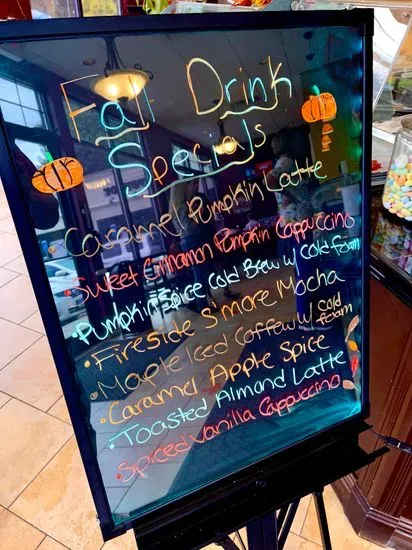 Fall Drink
Specials
Caramel Pumpkin Latte
• Sweet Cinnamon Pumpkin Cappuccino
• Pumpkin Spice Cold Brew w/ cold foam
• Fireside S'more Mocha
• Maple Iced Coffee w/ cold foam
• Caramel Apple Spice
• Toasted Almond Latte
• Spiced Vanilla Cappuccino